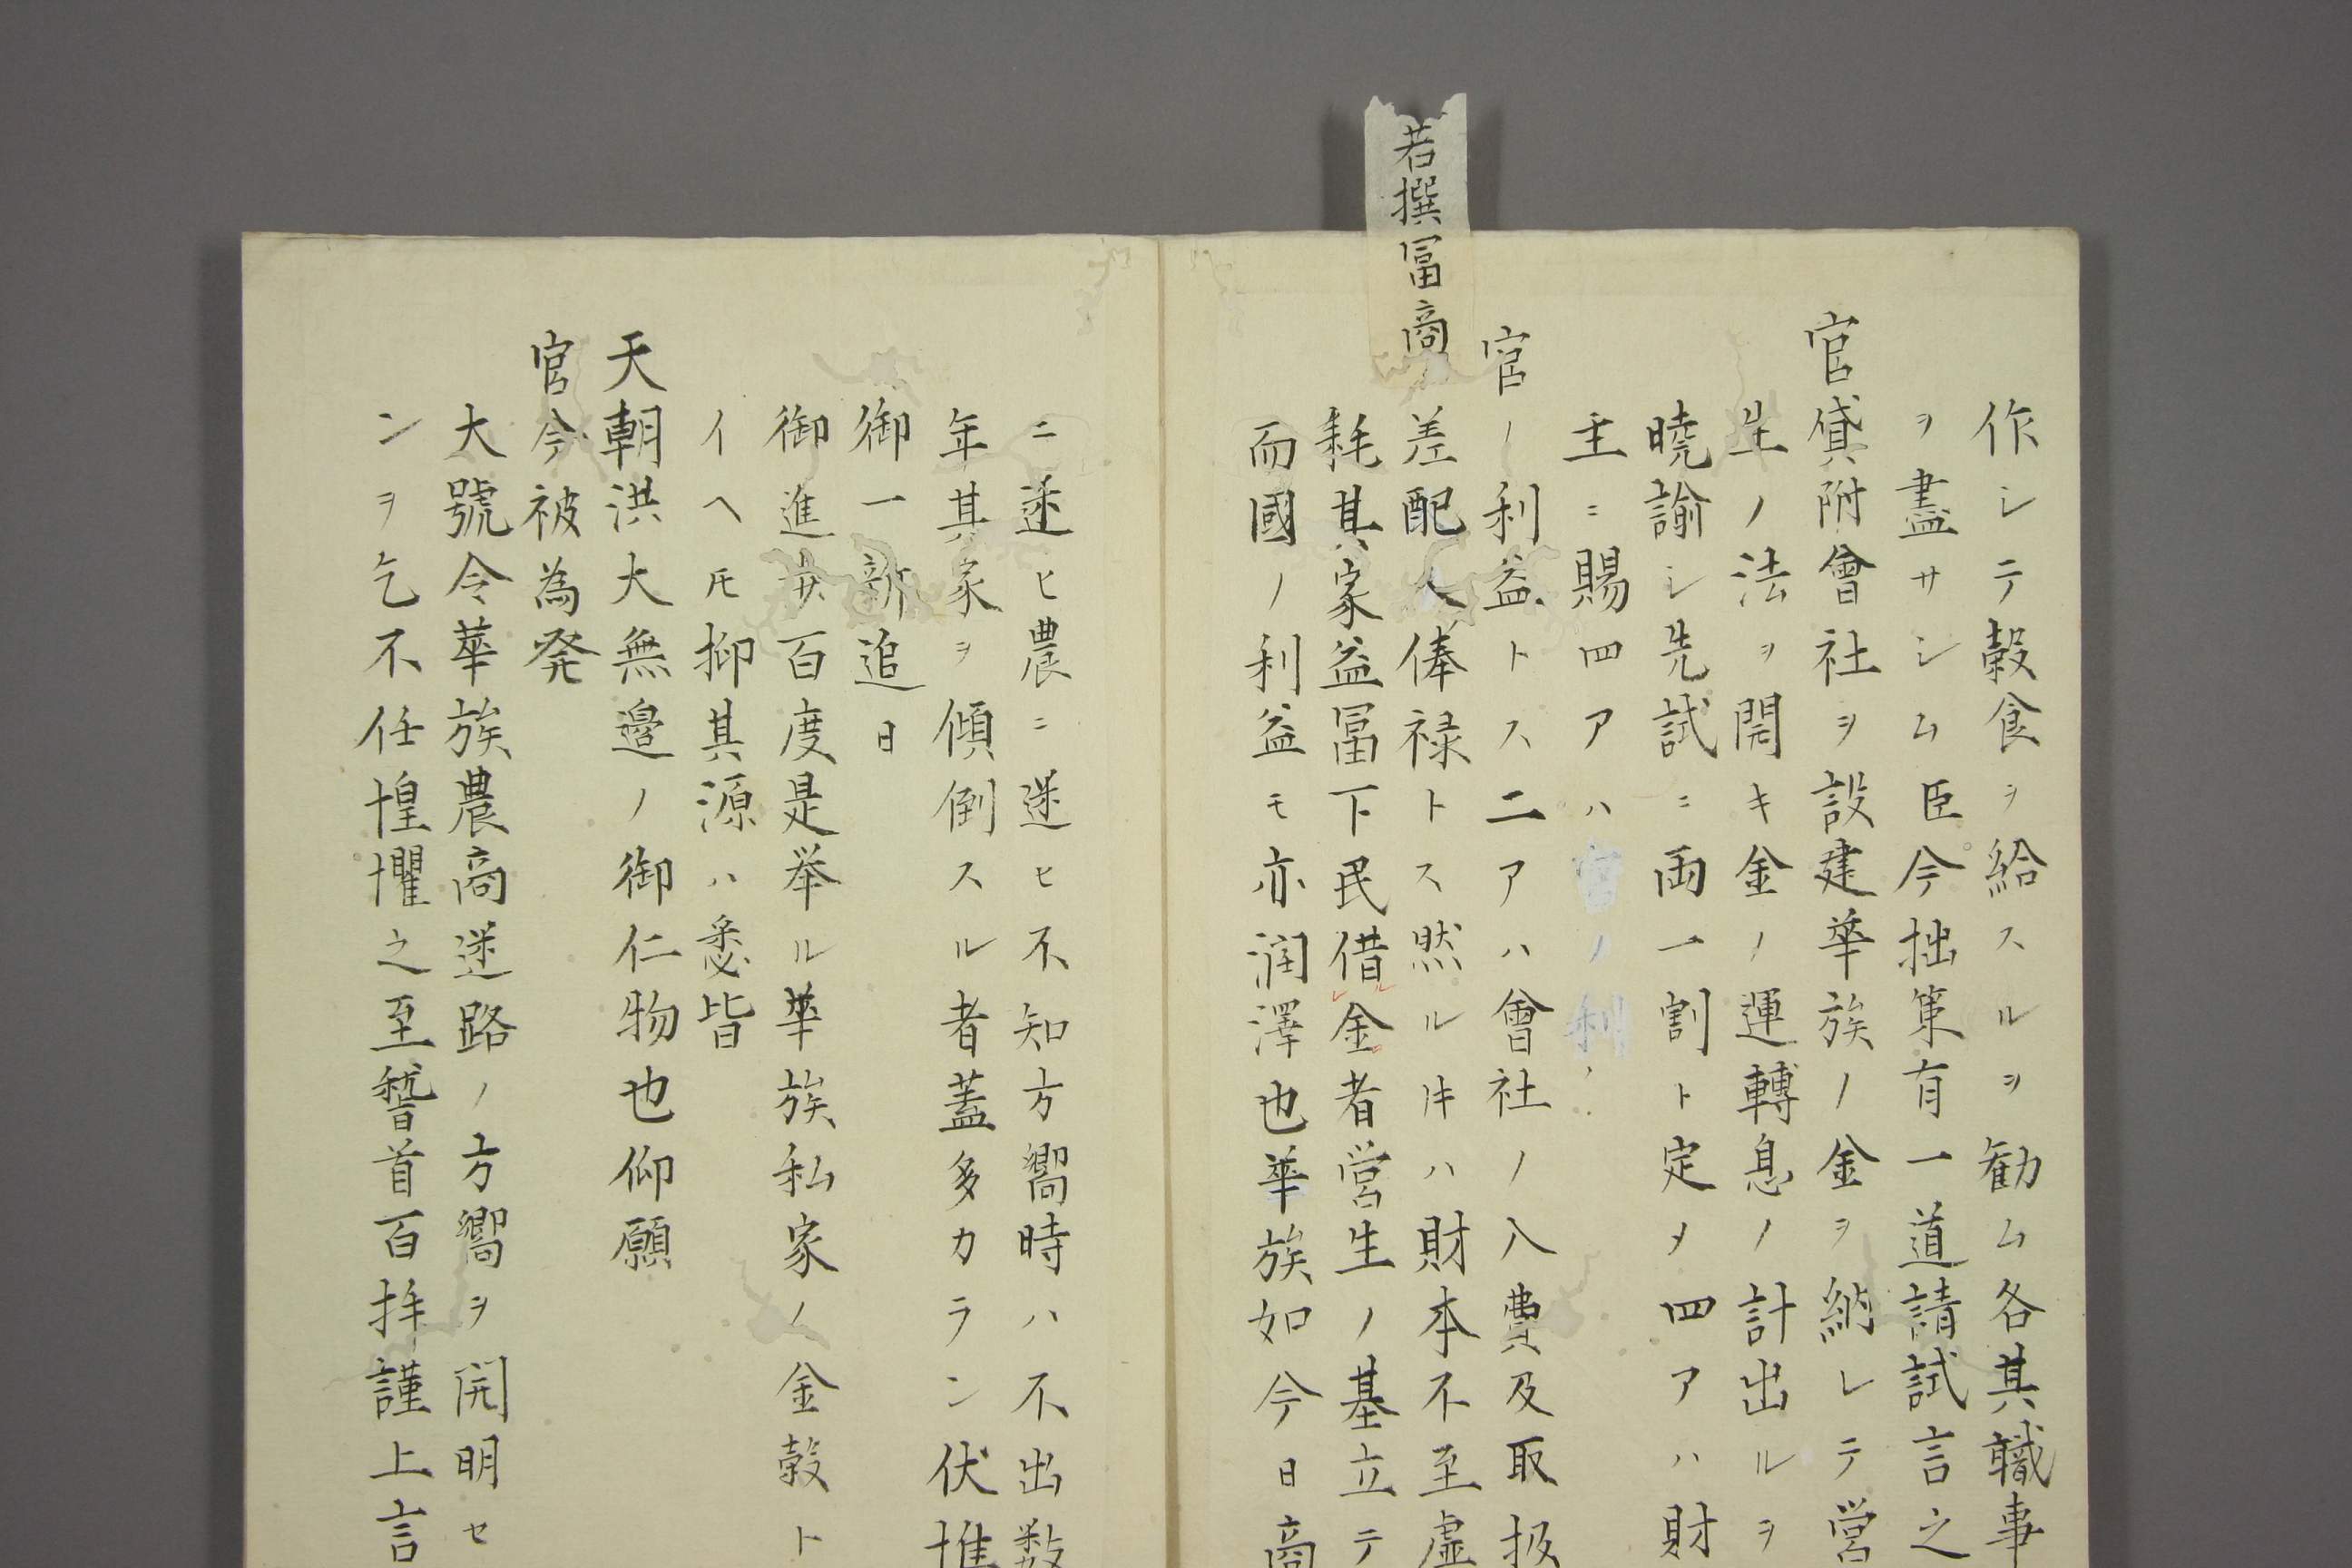 作シテ穀食ヲ給スルヲ勧ム各其職事
ヲ盡サシム臣今拙策有一道請試言之
官貸附會社ヲ設建華族ノ金ヲ納レテ営
生ノ法ヲ開キ金ノ運轉息ノ計出ルヲ
曉諭シ先試ニ両一割ト定メ四アハ財
主ニ賜四アハ官ノ利
官ノ利益トス二アハ會社ノ入費及取扱
若撰冨商
差配人俸禄トス然ル𪜈ハ財本不至虚
耗其家益冨下民借金者営生ノ基立テ
而國ノ利益モ亦潤澤也華族如今日商
ニ迷ヒ農ニ迷ヒ不知方嚮時ハ不出数
年其家ヲ傾倒スル者蓋多カラン伏惟
御一新追日
御進歩百度是举ル華族私家ノ金穀ト
イヘ𪜈抑其源ハ悉皆
天朝洪大無邉ノ御仁物也仰願
官今被為発
大號令華族農商迷路ノ方嚮ヲ開明セ
ンヲ乞不任惶懼之至稽首百拝謹上言